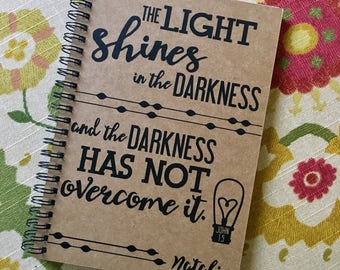 THE LIGHT
shines
in the DARKNESS
and the DARKNESS
HAS NOT
overcome it.
JOHN
1:5